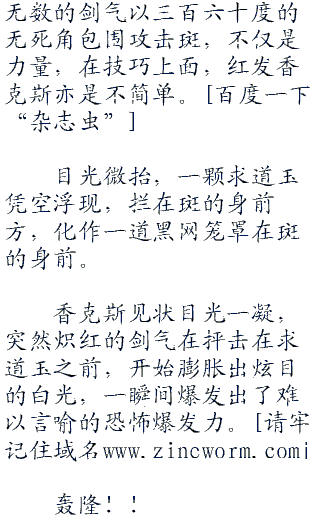 无数的剑气以三百六十度的
无死角包围攻击斑，不仅是
力量，在技巧上面，红发香
克斯亦是不简单。[百度一下
“杂志虫”]
目光微抬，一颗求道玉
凭空浮现，拦在斑的身前
方，化作一道黑网笼罩在斑
的身前。
香克斯见状目光一凝，
突然炽红的剑气在抨击在求
道玉之前，开始膨胀出炫目
的白光，一瞬间爆发出了难
以言喻的恐怖爆发力。[请牢
记住域名www.zincworm.com|
轰隆！！